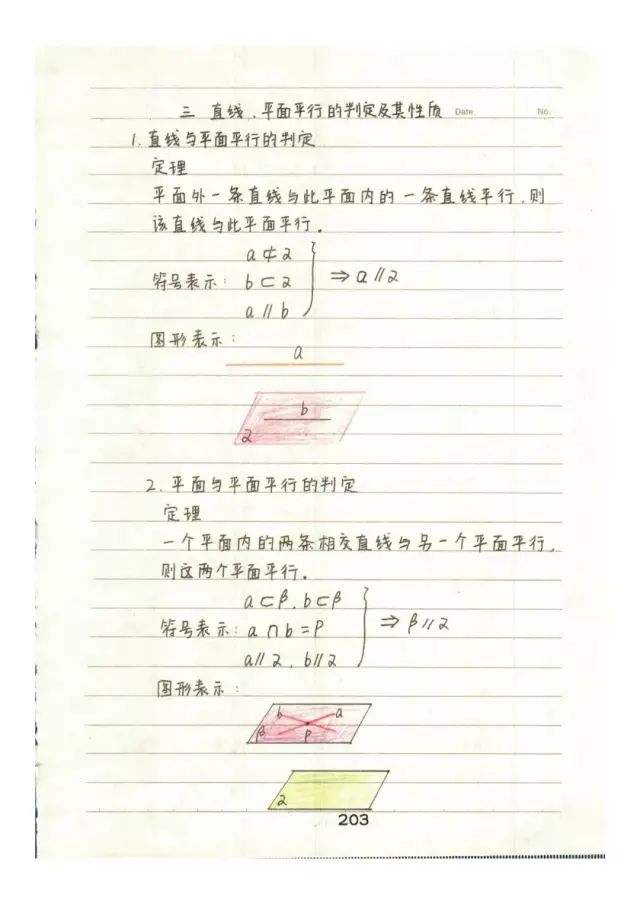 三 直线、平面平行的判定及其性质 Date. No.
1. 直线与平面平行的判定
定理
平面外一条直线与此平面内的一条直线平行,则
该直线与此平面平行。
a ⊄ α
符号表示: b ⊂ α ⇒ a // α
a // b
图形表示:
a
b
α
2. 平面与平面平行的判定
定理
一个平面内的两条相交直线与另一个平面平行,
则这两个平面平行.
a⊂β, b⊂β
符号表示: a ∩ b = P ⇒ β // α
a // α, b // α
图形表示:
b a
β P
α
203